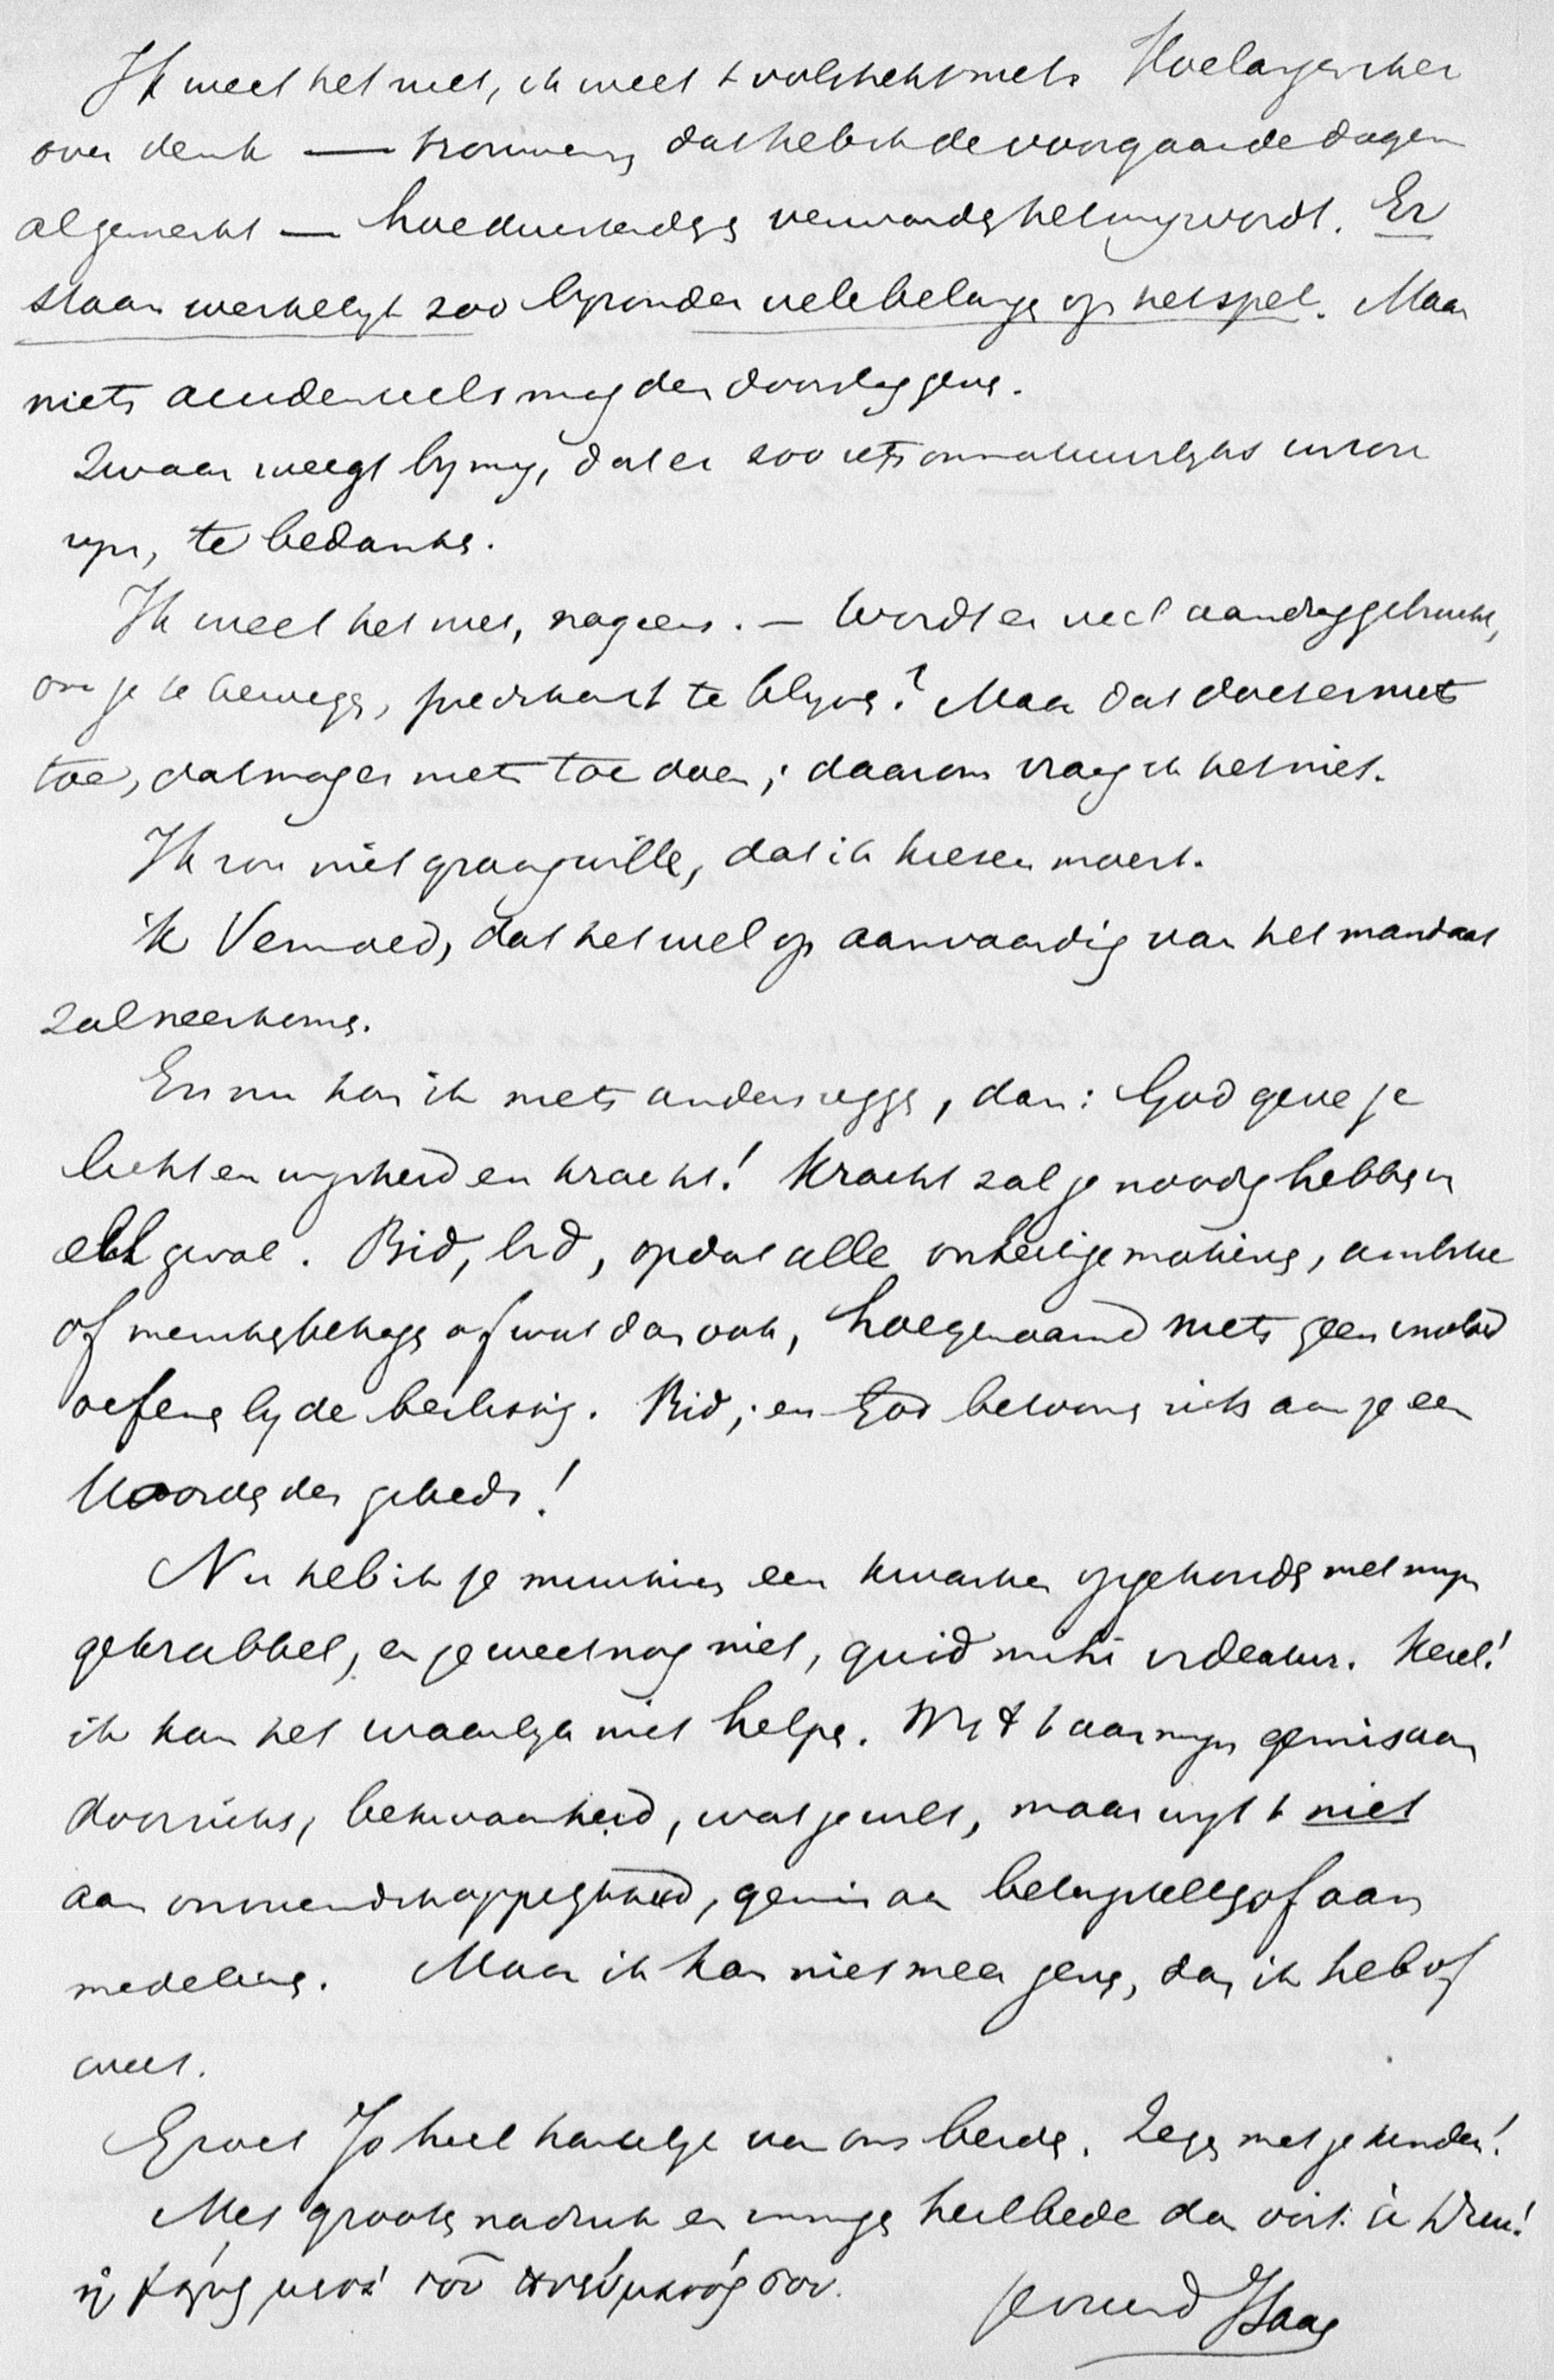 Ik weet het niet, ik weet 't volstrekt niet. Hoe langer ik er
over denk — trouwens, dat heb ik de voorgaande dagen
al gemerkt — hoe duizendigs verwards het mij wordt. Er
staan werkelijk zoo bijzonder vele belangen op het spel. Maar
niets menschelijks mag den doorslag geven.
Zwaar weegt bij mij, dat er zoo iets onnatuurlijks in zou
zijn, te bedanken.
Ik weet het niet, nogeens. — Wordt er veel aandrag gebruikt,
om je te bewegen, predikant te blijven? Maar dat doet er niets
toe, dat mag er niets toe doen; daarom vraag ik het niet.
Ik zou niet graag willen, dat ik kiezen moest.
'k Vermoed, dat het wel op aanvaarding van het mandaat
zal neerkomen.
En nu kan ik niets anders zeggen, dan: God geve je
licht en wijsheid en kracht! Kracht zal je noodig hebben in
elk geval. Bid, bid, opdat alle onheilige motieven, ambitie
of menschenbehagen of wat dan ook, hoegenaamd niets geen invloed
oefenen bij de beslissing. Bid; en God betoone zich aan je een
Hoorder des gebeds!
Nu heb ik je misschien een kwartier opgehouden met mijn
gekrabbel, en je weet nog niet, quid mihi videatur. Kerel!
ik kan het waarlijk niet helpen. Wijt 't aan mijn gemis aan
doorzicht, bekwaamheid, wat je wilt, maar wijt 't niet
aan onvriendschappelijkheid, gemis aan belangstelling of aan
medeleven. Maar ik kan niet meer geven, dan ik heb of
weet.
Groet Jo heel hartelijk van ons beiden. Zegen met je kinder!
Met grooten nadruk en innige heilbede dan voor: à Dieu!
ἡ χάρις μετὰ τοῦ πνεύματός σου.
je vriend Isaac